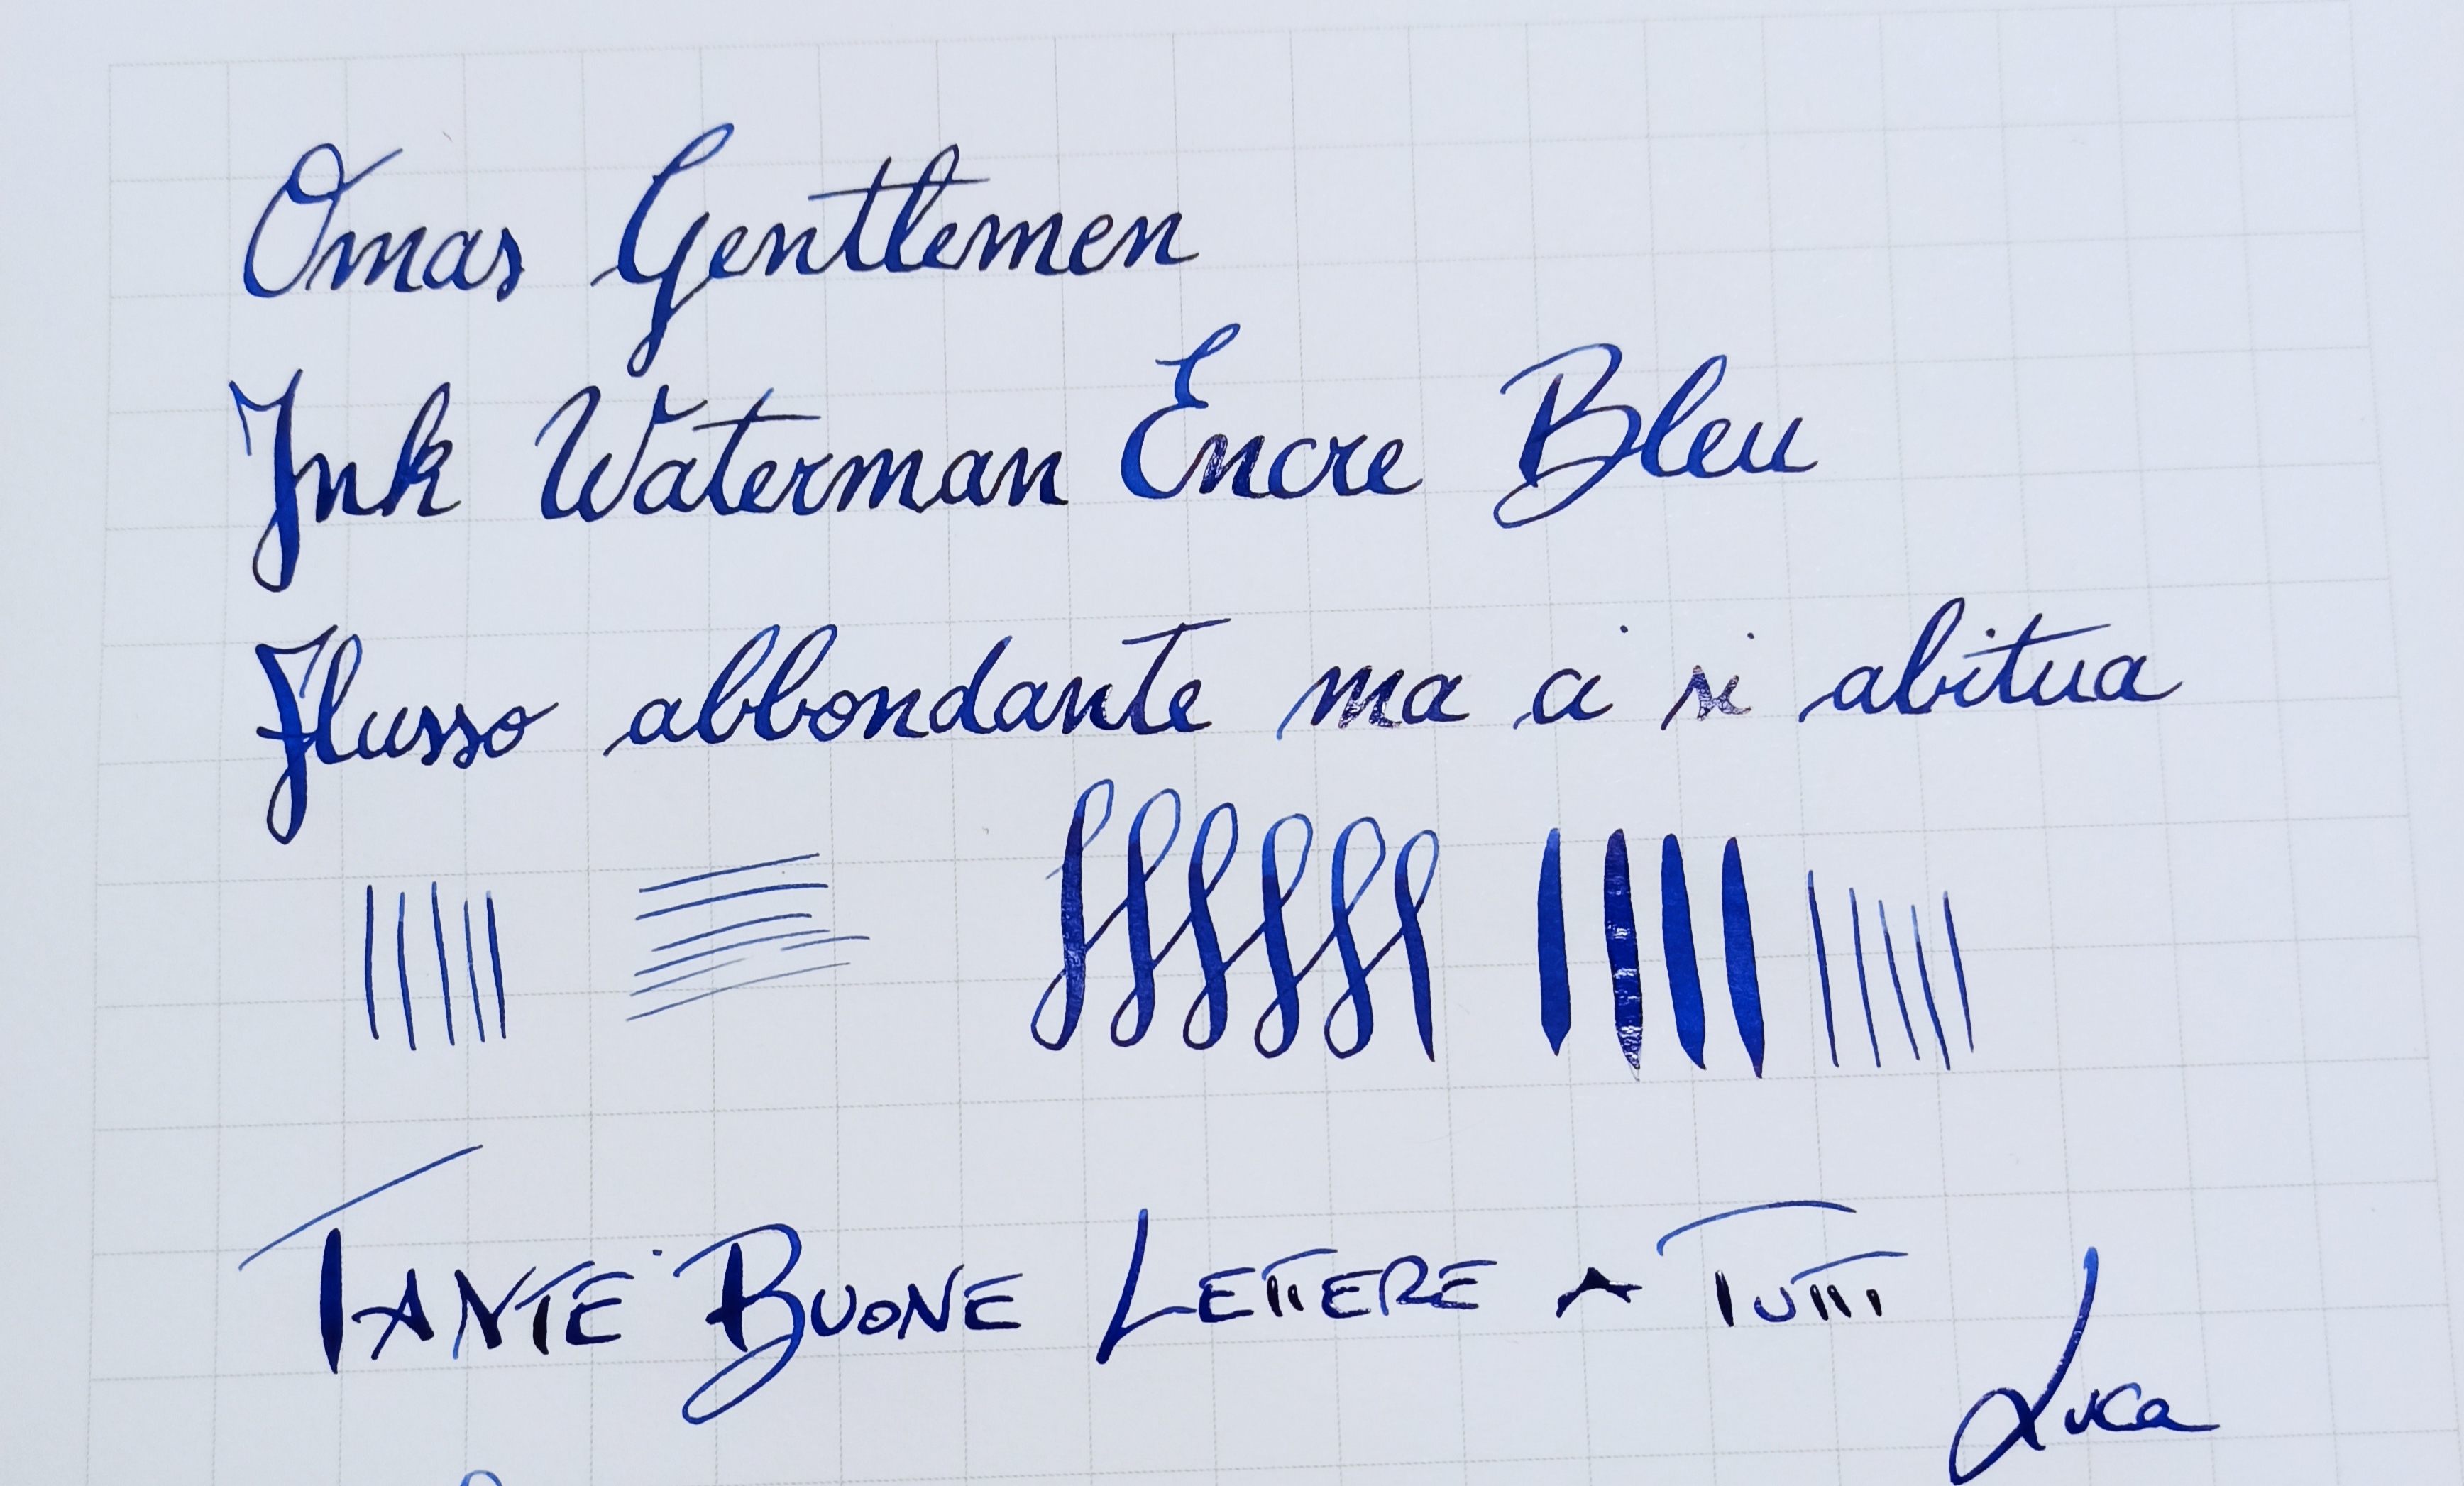 Omas Gentlemen
Ink Waterman Encre Bleu
Flusso abbondante ma ci si abitua
TANTE BUONE LETTERE A TUTTI
Luca